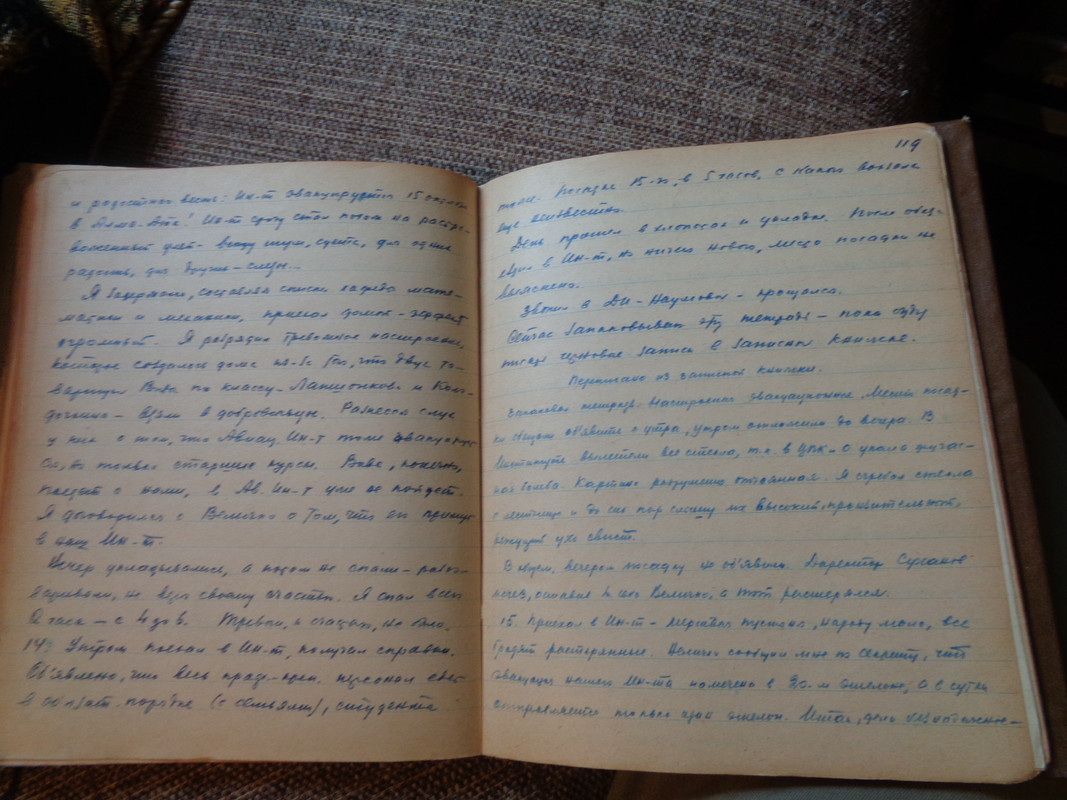 и радостная весть: Ин-т эвакуируется 15 октября
в Алма-Ата! Ин-т сразу стал похож на растре-
воженный улей - всюду шум, суета, для одних
радость, для других - слезы...
Я задержался, составляя списки кафедр мате-
матики и механики, приехал домой - эффект
огромный. Я разрядил тревожное настроение,
которое создалось дома из-за того, что двух то-
варищей Вовы по классу - и
- взяли в добровольцы. Разнесся слух
у них о том, что Авиац. Ин-т тоже эвакуирует-
ся, но только старшие курсы. Вова, конечно,
поедет с нами, в Ав. Ин-т уже не пойдет.
Я договорился с Величко о том, что он примут
в наш Ин-т.
Вечер укладывались, а ночью не спали - разго-
варивали, не веря своему счастью. Я спал всего
2 часа - с 4 до 6. Тревоги, к счастью, не было.
14) Утром поехал в Ин-т, получал справки.
Об'явлено, что весь персонал едет
в обязат. порядке (с семьями), студенты
119
тоже. Посадка 15-го, в 5 часов, с какого вокзала
еще неизвестно.
День прошел в хлопотах и укладке. После обед-
ездил в Ин-т, но ничего нового, место посадки не
выяснено.
Звонил в Наумовой - прощался.
Сейчас запаковываю эту тетрадь - пока буду
писать черновые записи в записной книжке.
Переписано из записной книжки.
Запаковал тетрадь. Настроение эвакуационное. Место посад-
ки обещали об'явить с утра, утром отложили до вечера. В
Институте вылетели все стекла, т.к. в упала фугас-
ная бомба. Картина разрушения отчаянная. Я сгребал стекла
с лестницы и до сих пор слышу их высокий, пронзительный,
режущий ухо свист.
В общем, вечером посадку не об'явили. Директор Суханов
исчез, оставив за себя Величко, а тот растерялся.
15. Приехал в Ин-т - мертвая пустыня, народу мало, все
бродят растерянные. Величко сообщил мне по секрету, что
эвакуация нашего Ин-та намечена в 30-м эшелоне, а в сутки
отправляется только один эшелон. Итак, дело безнадежное -